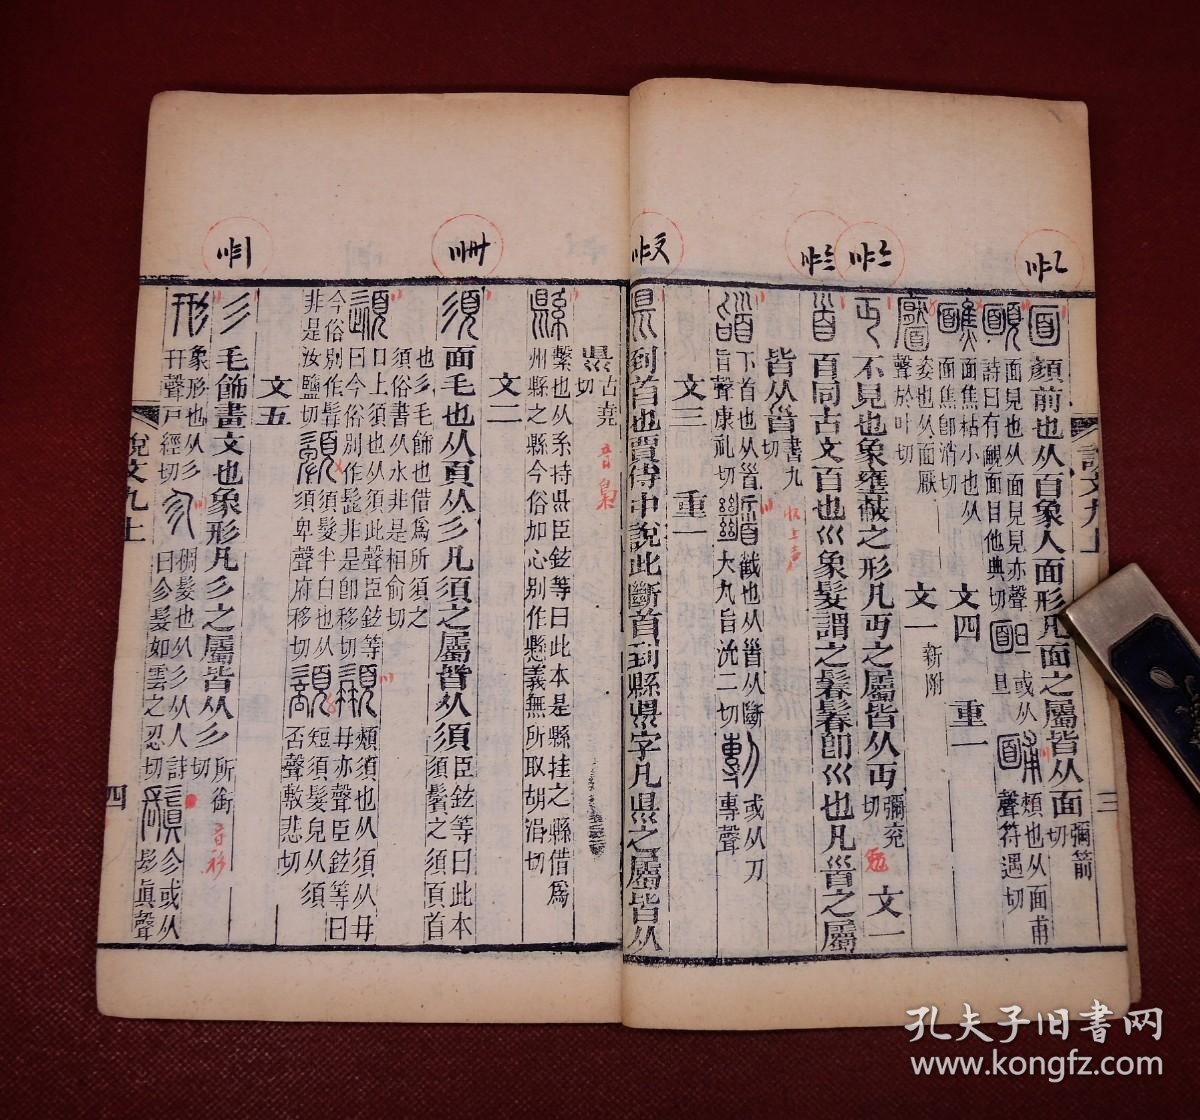 面 顏前也从𦣻象人面形凡面之屬皆从面 彌箭切
靦 面見也从面見見亦聲詩曰有靦面目他典切 或从旦 頰也从面甫聲符遇切
面焦枯小也从面焦即消切 文四 重一
姿也从面厭聲於叶切 文一 新附
丏 不見也象壅蔽之形凡丏之屬皆从丏 彌兗切 文一
𩠐 百同古文百也巛象髮謂之鬊鬊即巛也凡𩠐之屬
皆从𩠐 書九切
下首也从𩠐旨聲康礼切 截也从𩠐从斷大丸旨沇二切 或从刀專聲
文三 重一
𥄉 到首也賈侍中說此斷首到縣𥄉字凡𥄉之屬皆从
𥄉 古堯切 音梟
縣 繫也从系持𥄉臣鉉等曰此本是縣挂之縣借爲州縣之縣今俗加心別作懸義無所取胡涓切
文二
須 面毛也从頁从彡凡須之屬皆从須 臣鉉等曰此本須鬢之須頁首
也彡毛飾也借爲所須之須俗書从水非是相俞切
口上須也从須此聲臣鉉等曰今俗別作髭非是即移切 頰須也从須从冄冄亦聲臣鉉等曰
今俗別作髯非是汝鹽切 須髮半白也从須卑聲府移切 短須髮皃从須否聲敷悲切
文五
彡 毛飾畫文也象形凡彡之屬皆从彡 所銜切 音衫
形 象形也从彡幵聲戶經切 㐱 稠髮也从彡从人詩曰㐱髮如雲之忍切 㐱或从髟眞聲
說文九上
三
說文九上
四
孔夫子旧書网
www.kongfz.com